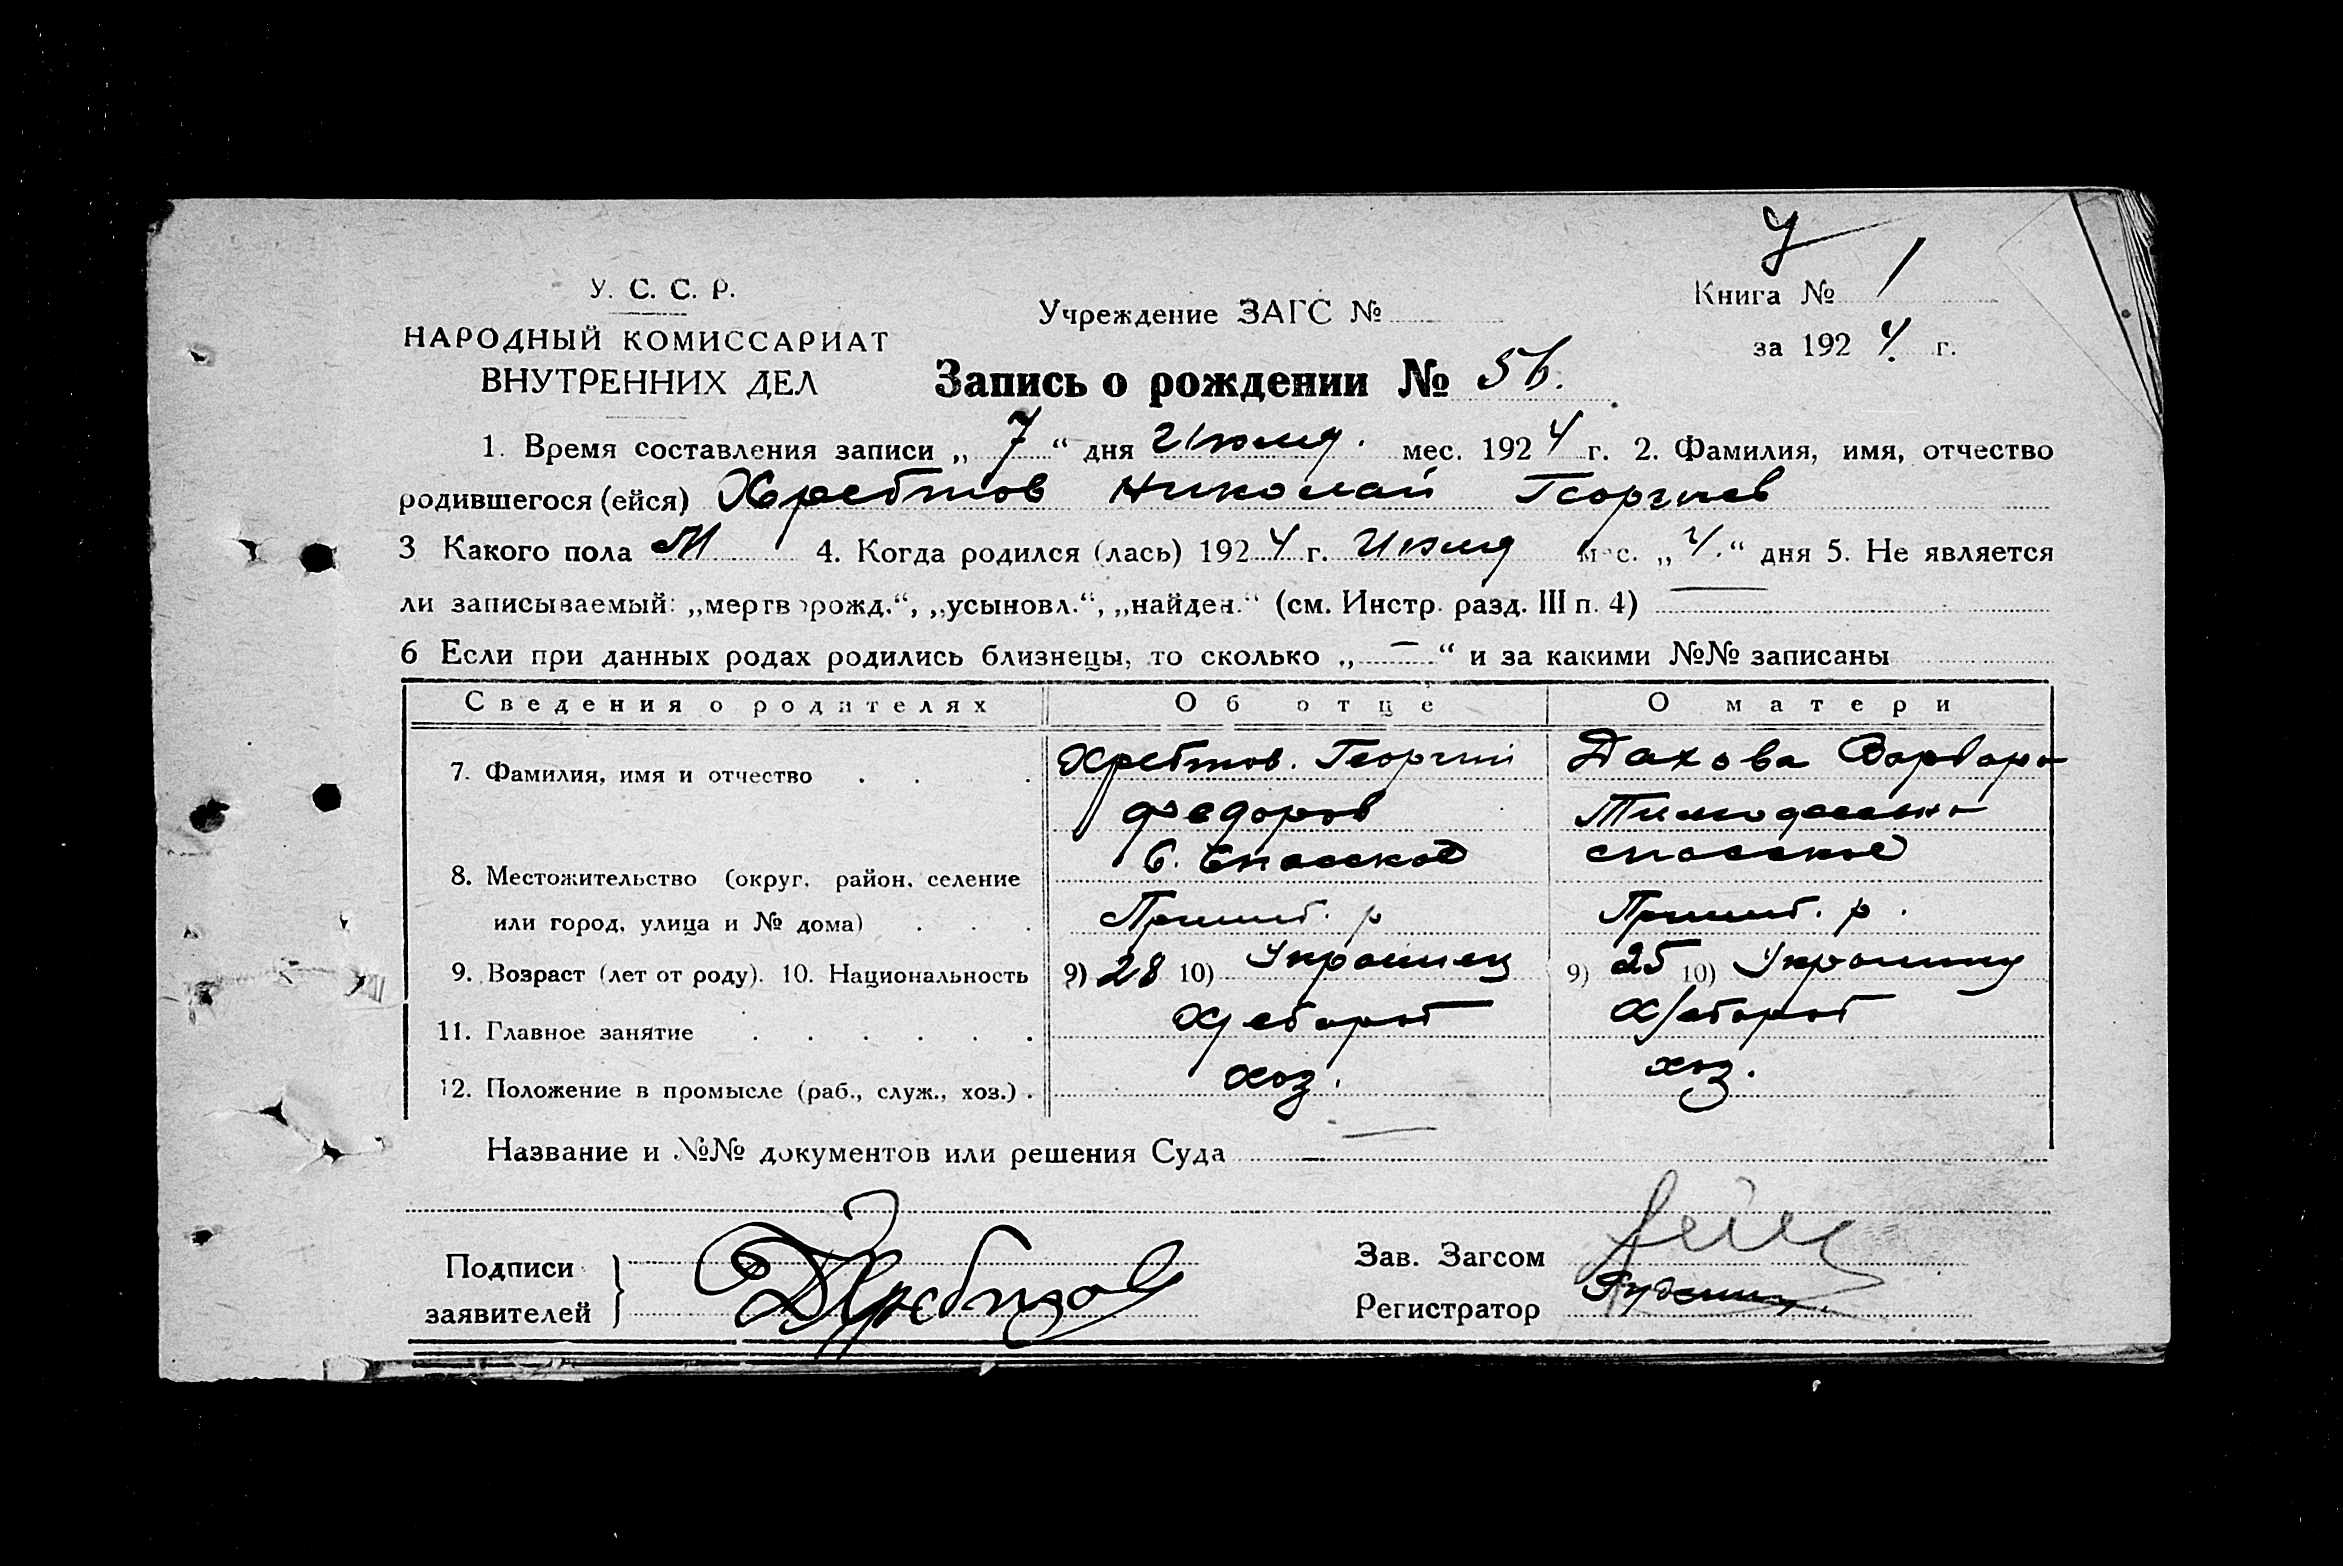 У
У. С. С. Р.
НАРОДНЫЙ КОМИССАРИАТ
ВНУТРЕННИХ ДЕЛ
Учреждение ЗАГС №
Книга № 1
за 1924 г.
Запись о рождении № 56.
1. Время составления записи „ 7 “ дня Июля. мес. 1924 г. 2. Фамилия, имя, отчество
родившегося (ейся) Хребтов Николай Георгиев
3 Какого пола М 4. Когда родился (лась) 1924 г. Июля мес. „ 4. “ дня 5. Не является
ли записываемый: „мертворожд.“, „усыновл.“, „найден.“ (см. Инстр. разд. III п. 4) —
6 Если при данных родах родились близнецы, то сколько „ — “ и за какими №№ записаны
Сведения о родителях Об отце О матери
7. Фамилия, имя и отчество . . . Хребтов. Георгий Дахова Варвара
Федоров
С. Спасское спасское
8. Местожительство (округ, район, селение
или город, улица и № дома) . . . р р.
9. Возраст (лет от роду). 10. Национальность 9) 28 10) Украинец 9) 25 10)
11. Главное занятие . . . . . .
12. Положение в промысле (раб., служ., хоз.) . хоз. хоз.
Название и №№ документов или решения Суда —
Подписи
заявителей
Хребтов
Зав. Загсом
Регистратор